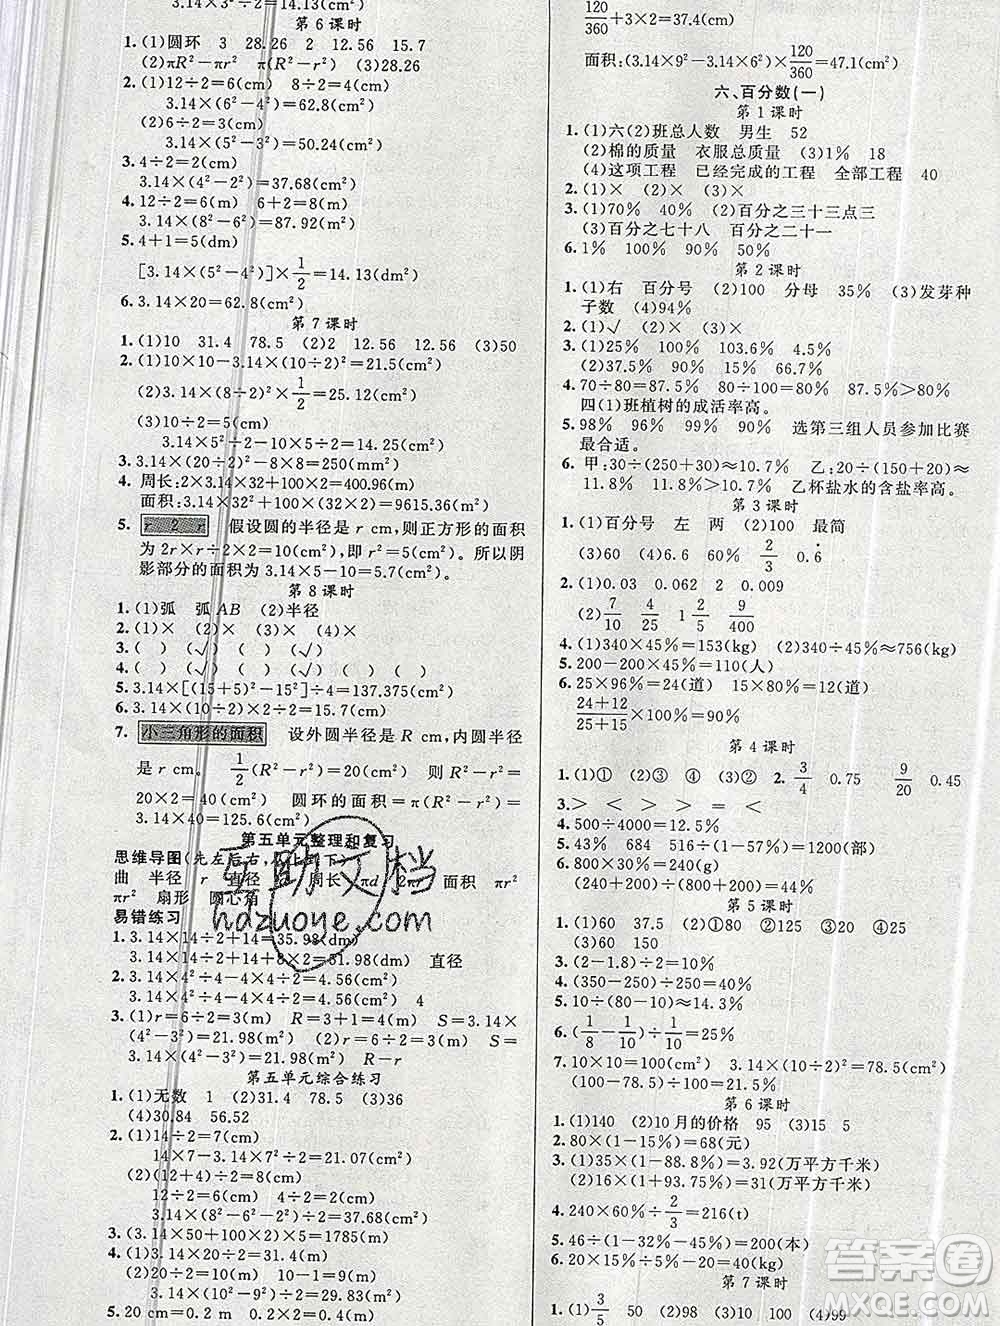 2÷2=14.13(cm²)
第6课时
1.(1)圆环 3 28.26 2 12.56 15.7
(2)πR²-πr² π(R²-r²) (3)28.26
2.(1)12÷2=6(cm) 8÷2=4(cm)
3.14×(6²-4²)=62.8(cm²)
(2)6÷2=3(cm)
3.14×(5²-3²)=50.24(cm²)
3.4÷2=2(cm)
3.14×(4²-2²)=37.68(cm²)
4.12÷2=6(m) 6+2=8(m)
3.14×(8²-6²)=87.92(m²)
5.4+1=5(dm)
[3.14×(5²-4²)]×1/2=14.13(dm²)
6.3.14×20=62.8(cm²)
第7课时
1.(1)10 31.4 78.5 (2)2 12.56 12.56 (3)50
2.(1)10×10-3.14×(10÷2)²=21.5(cm²)
(2)3.14×(8÷2)²×1/2=25.12(cm²)
(3)10÷2=5(cm)
3.14×5²÷2-10×5÷2=14.25(cm²)
3.3.14×(20÷2)²-8×8=250(mm²)
4.周长:2×3.14×32+100×2=400.96(m)
面积:3.14×32²+100×(32×2)=9615.36(m²)
5.r 2 r 假设圆的半径是 r cm,则正方形的面积
为 2r×r÷2=10(cm²),即 r²=5(cm²)。所以阴
影部分的面积为 3.14×5-10=5.7(cm²)。
第8课时
1.(1)弧 弧AB (2)半径
2.(1)× (2)× (3)× (4)×
3.( ) (√) ( ) (√)
4.(√) ( ) ( ) ( )
5.3.14×[(15+5)²-15²]÷4=137.375(cm²)
6.3.14×(3+2)×2÷2=15.7(cm)
7.小三角形的面积 设外圆半径是 R cm,内圆半径
是 r cm。 1/2(R²-r²)=20(cm²) 则 R²-r²=
20×2=40(cm²) 圆环的面积=π(R²-r²)=
3.14×40=125.6(cm²)
第五单元整理和复习
思维导图(先左后右,从上到下)
曲 半径 r 直径 d 周长 πd 2πr 面积 πr²
πr² 扇形 圆心角
易错练习
1.3.14×14÷2+14=35.98(dm)
3.14×14÷2+14+8×2=51.98(dm) 直径
2.3.14×4²÷4-4×4÷2=4.56(cm²)
3.14×4²÷4-4×4÷2=4.56(cm²) 4
3.(1)r=6÷2=3(m) R=3+1=4(m) S=3.14×
(4²-3²)=21.98(m²) (2)r=6÷2=3(m) S=
3.14×(4²-3²)=21.98(m²) R-r
第五单元综合练习
1.(1)无数 1 (2)31.4 78.5 (3)36
(4)30.84 56.52
2.(1)14÷2=7(cm)
14×7-3.14×7²÷2=21.07(cm²)
(2)(12+4)÷2=8(cm)
12÷2=6(cm) 4÷2=2(cm)
3.14×(8²-6²-2²)÷2=37.68(cm²)
3.(3.14×50+100×2)×5=1785(m)
4.(1)3.14×(20÷2)²÷2=157(m²)
(2)20÷2=10(m)
3.14×10+1=32.4(m)
5.20 cm=0.2 m 0.2×2=0.4(m)
120/360+3×2=37.4(cm)
面积:(3.14×9²-3.14×6²)×120/360=47.1(cm²)
六、百分数(一)
第1课时
1.(1)六(2)班总人数 男生 52
(2)棉的质量 衣服总质量 (3)1% 18
(4)这项工程 已经完成的工程 全部工程 40
2.(1)× (2)× (3)×
3.(1)70% 40% (2)百分之三十三点三
(3)百分之七十八 百分之二十一
6.1% 100% 90% 50%
第2课时
1.(1)右 百分号 (2)100 分母 35% (3)发芽种
子数 (4)94%
2.(1)√ (2)× (3)×
3.(1)25% 100% 103.6% 4.5%
(2)37.5% 90% 15% 66.7%
4.70÷80=87.5% 80÷100=80% 87.5%>80%
四(1)班植树的成活率高。
5.98% 96% 99% 90% 选第三组人员参加比赛
最合适。
6.甲:30÷(250+30)≈10.7% 乙:20÷(150+20)≈
11.8% 11.8%>10.7% 乙杯盐水的含盐率高。
第3课时
1.(1)百分号 左 两 (2)100 最简
(3)60 (4)6.6 60% 2/3 0.6̇
2.(1)0.03 0.062 2 0.009
(2)7/10 4/25 1 4/5 9/400
4.(1)340×45%=153(kg) (2)340÷45%≈756(kg)
5.200-200×45%=110(人)
6.25×96%=24(道) 15×80%=12(道)
(24+12)/(25+15)×100%=90%
第4课时
1.(1)① (2)③ ④ (3)④ 2.3/4 0.75 9/20 0.45
3.> < > = <
4.500÷4000=12.5%
5.43% 684 516÷43%=1200(部)
6.800×30%=240(g)
(240+200)÷(800+200)=44%
第5课时
1.(1)60 37.5 (2)①80 ②125 ③20 ④25
(3)60 150
3.(2-1.8)÷2=10%
4.(350-250)÷250=40%
5.10÷(80-10)≈14.3%
6.(1/8-1/10)÷1/10=25%
7.10×10=100(cm²) 3.14×(10÷2)²=78.5(cm²)
(100-78.5)÷100=21.5%
第6课时
1.(1)140 (2)10月的价格 95 (3)15 5
2.80×(1-15%)=68(元)
3.(1)35×(1-88.8%)=3.92(万平方千米)
(2)16×(1+93.75%)=31(万平方千米)
4.240×60%÷2/3=216(t)
5.46÷(1-32%-45%)=200(本)
6.20×15%÷5%-20=40(kg)
第7课时
1.(1)3/5 50 (2)98 (3)10 100 (4)99
互助文档
hdzuoye.com
答案圈
MXQE.COM